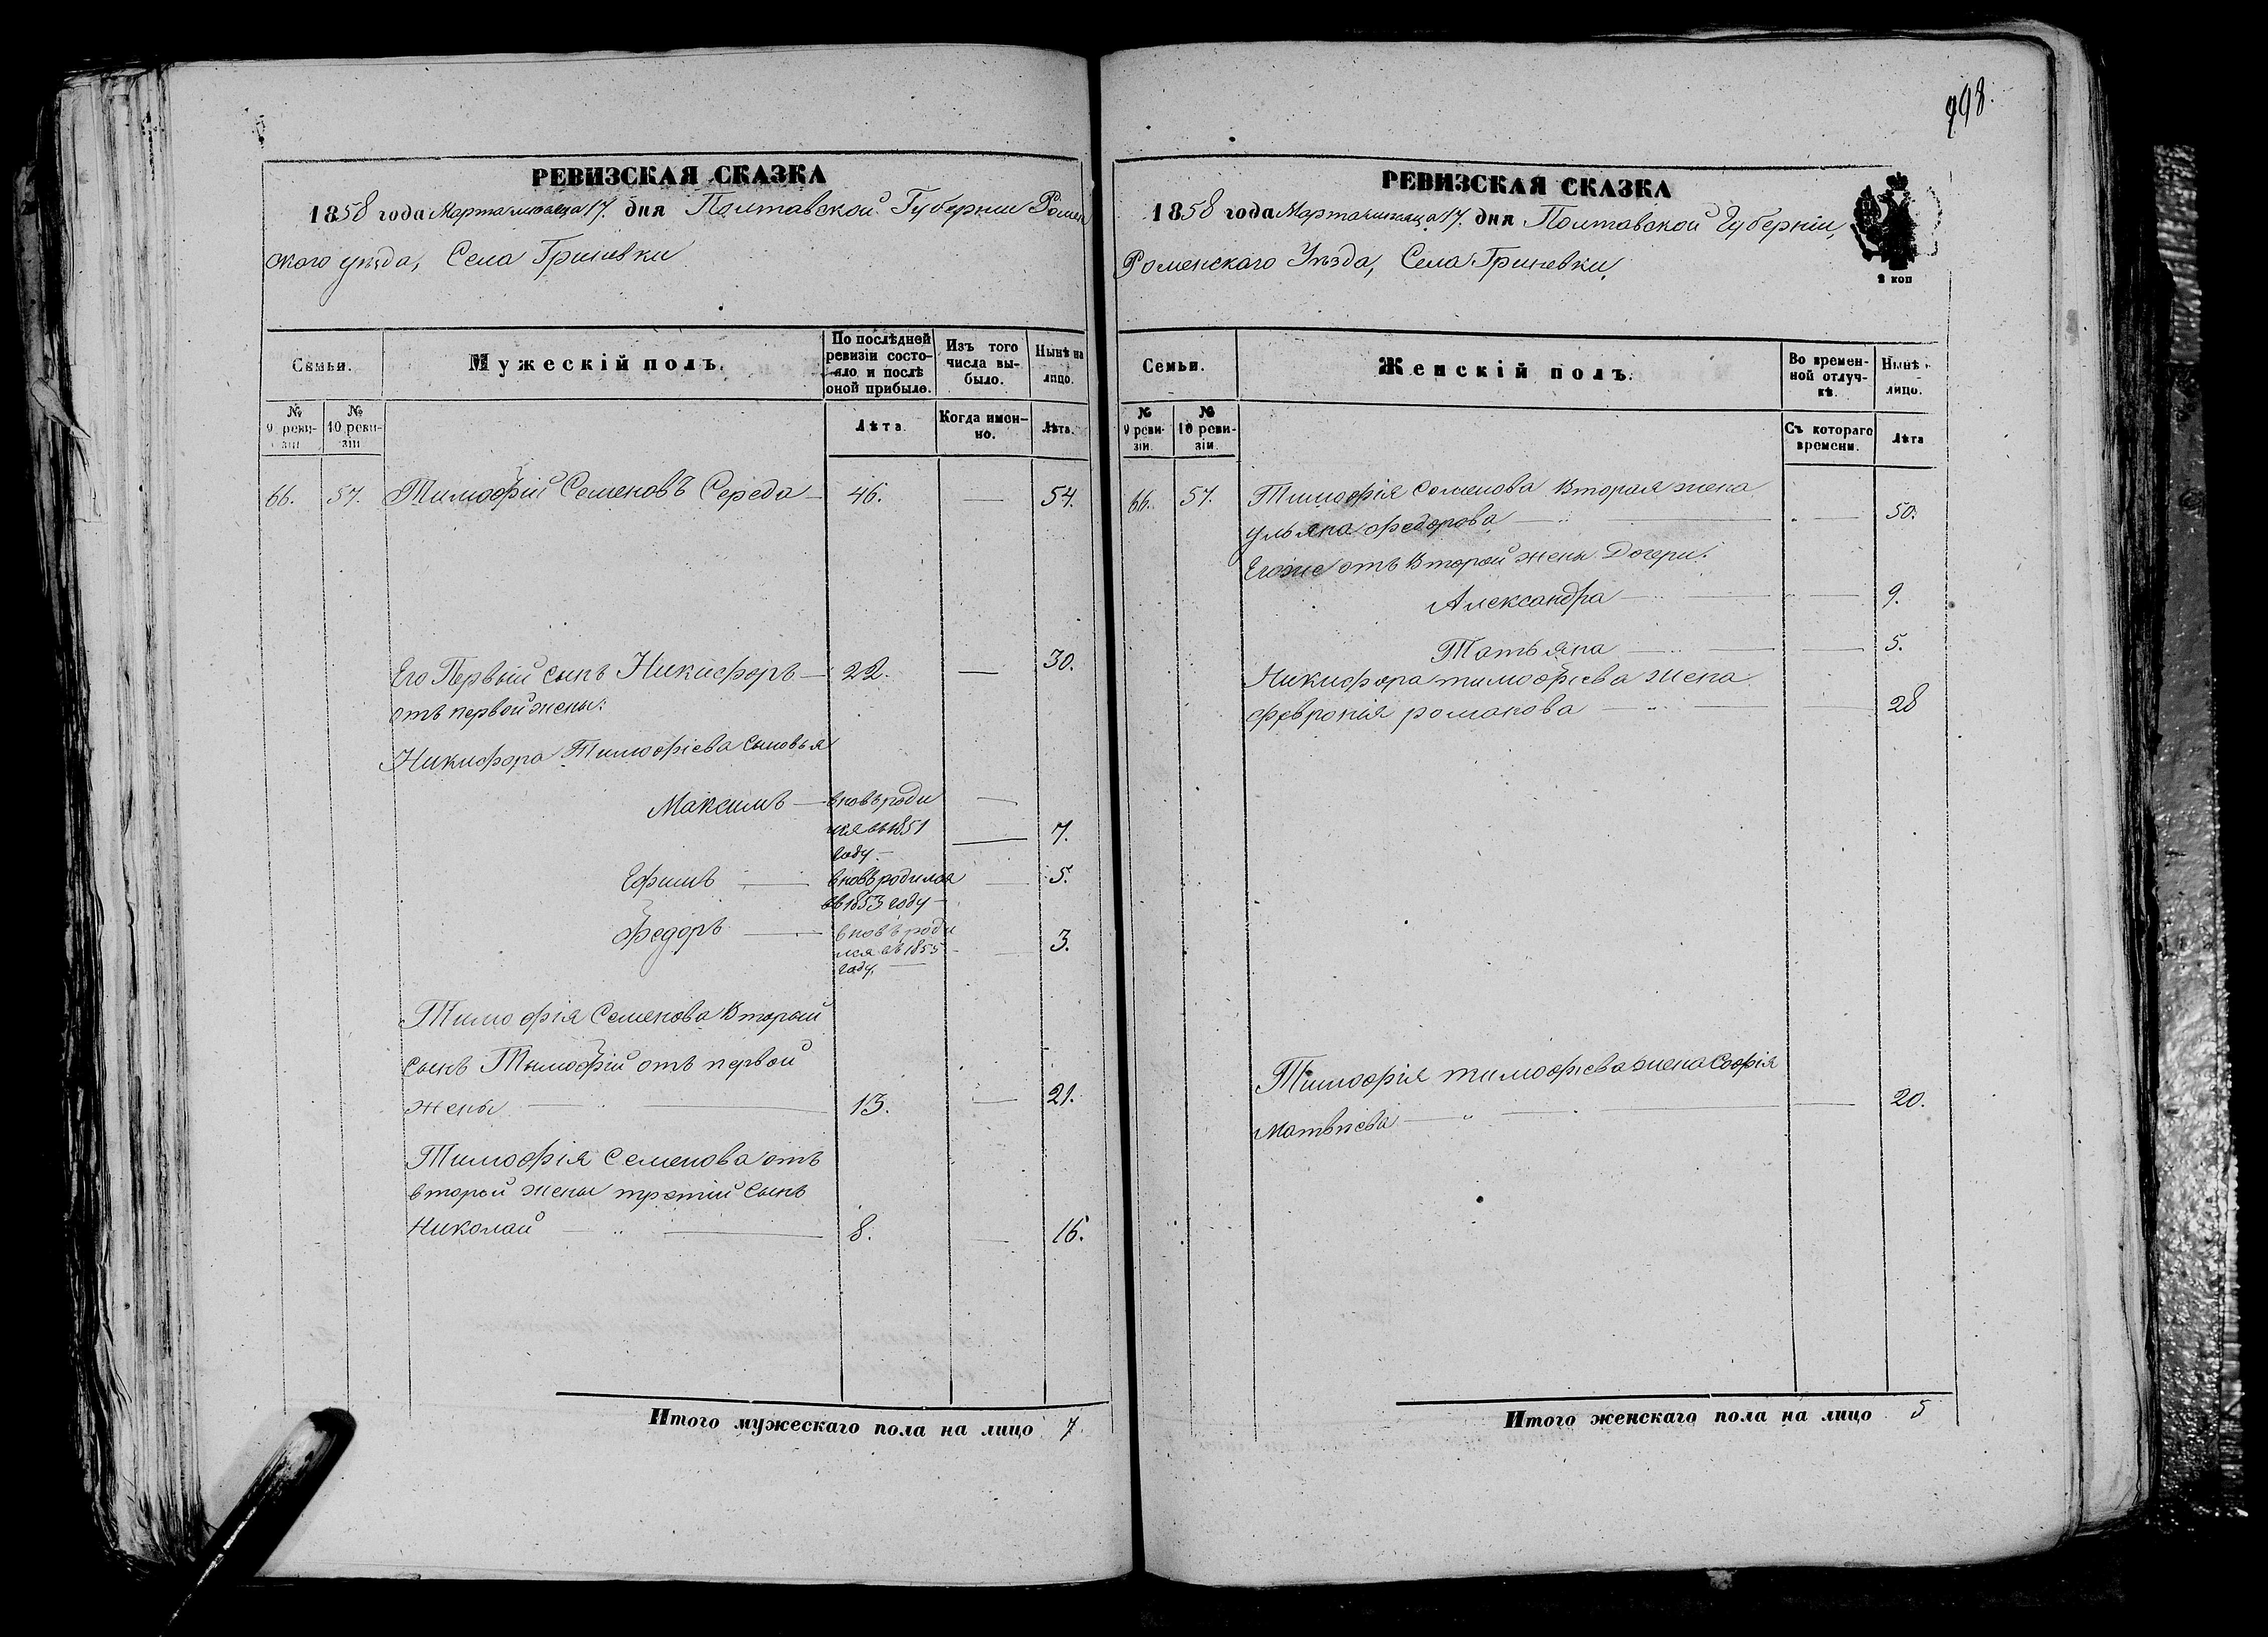 998.
РЕВИЗСКАЯ СКАЗКА
1858 года Марта месяца 17. дня Полтавской Губернии Ромен
ского уезда, Села Гриневки
Семьи.
Мужескій полъ.
По послѣдней ревизіи состояло и послѣ оной прибыло.
Изъ того числа выбыло.
Нынѣ на лицо.
№ 9 ревизіи
№ 10 ревизіи
Лѣта.
Когда именно.
Лѣта.
66. 57. Тимофій Семеновъ Середа — 46. — 54.
Его Первый сынъ Никифоръ — 22. — 30.
отъ первой жены.
Никифора Тимофіева сыновья
Максимъ — вновь роди
лся въ 1851 — 7.
году. —
Ефимъ — вновь родился — 5.
въ 1853 году —
Федоръ — вновь роди
лся въ 1855 — 3.
году. —
Тимофія Семенова Вторый
сынъ Тимофій отъ первой
жены — 13. — 21.
Тимофія Семенова отъ
второй жены третій сынъ
Николай — 8. — 16.
Итого мужескаго пола на лицо 7.
РЕВИЗСКАЯ СКАЗКА
1858 года Марта месяца 17. дня Полтавской Губерніи,
Роменскаго Уезда, Села Гриневки.
2 коп
Семьи.
Женскій полъ.
Во временной отлучкѣ.
Нынѣ лицо.
№ 9 ревизіи.
№ 10 ревизіи.
Съ котораго времени.
Лѣта
66. 57. Тимофія Семенова Вторая жена
ульяна федорова — 50.
Егоже отъ Второй жены Дочери.
Александра — 9.
Татьяна — 5.
Никифора тимофіева жена
февронія романова — 28
Тимофія тимофіева жена Софія
матвіева — 20.
Итого женскаго пола на лицо 5